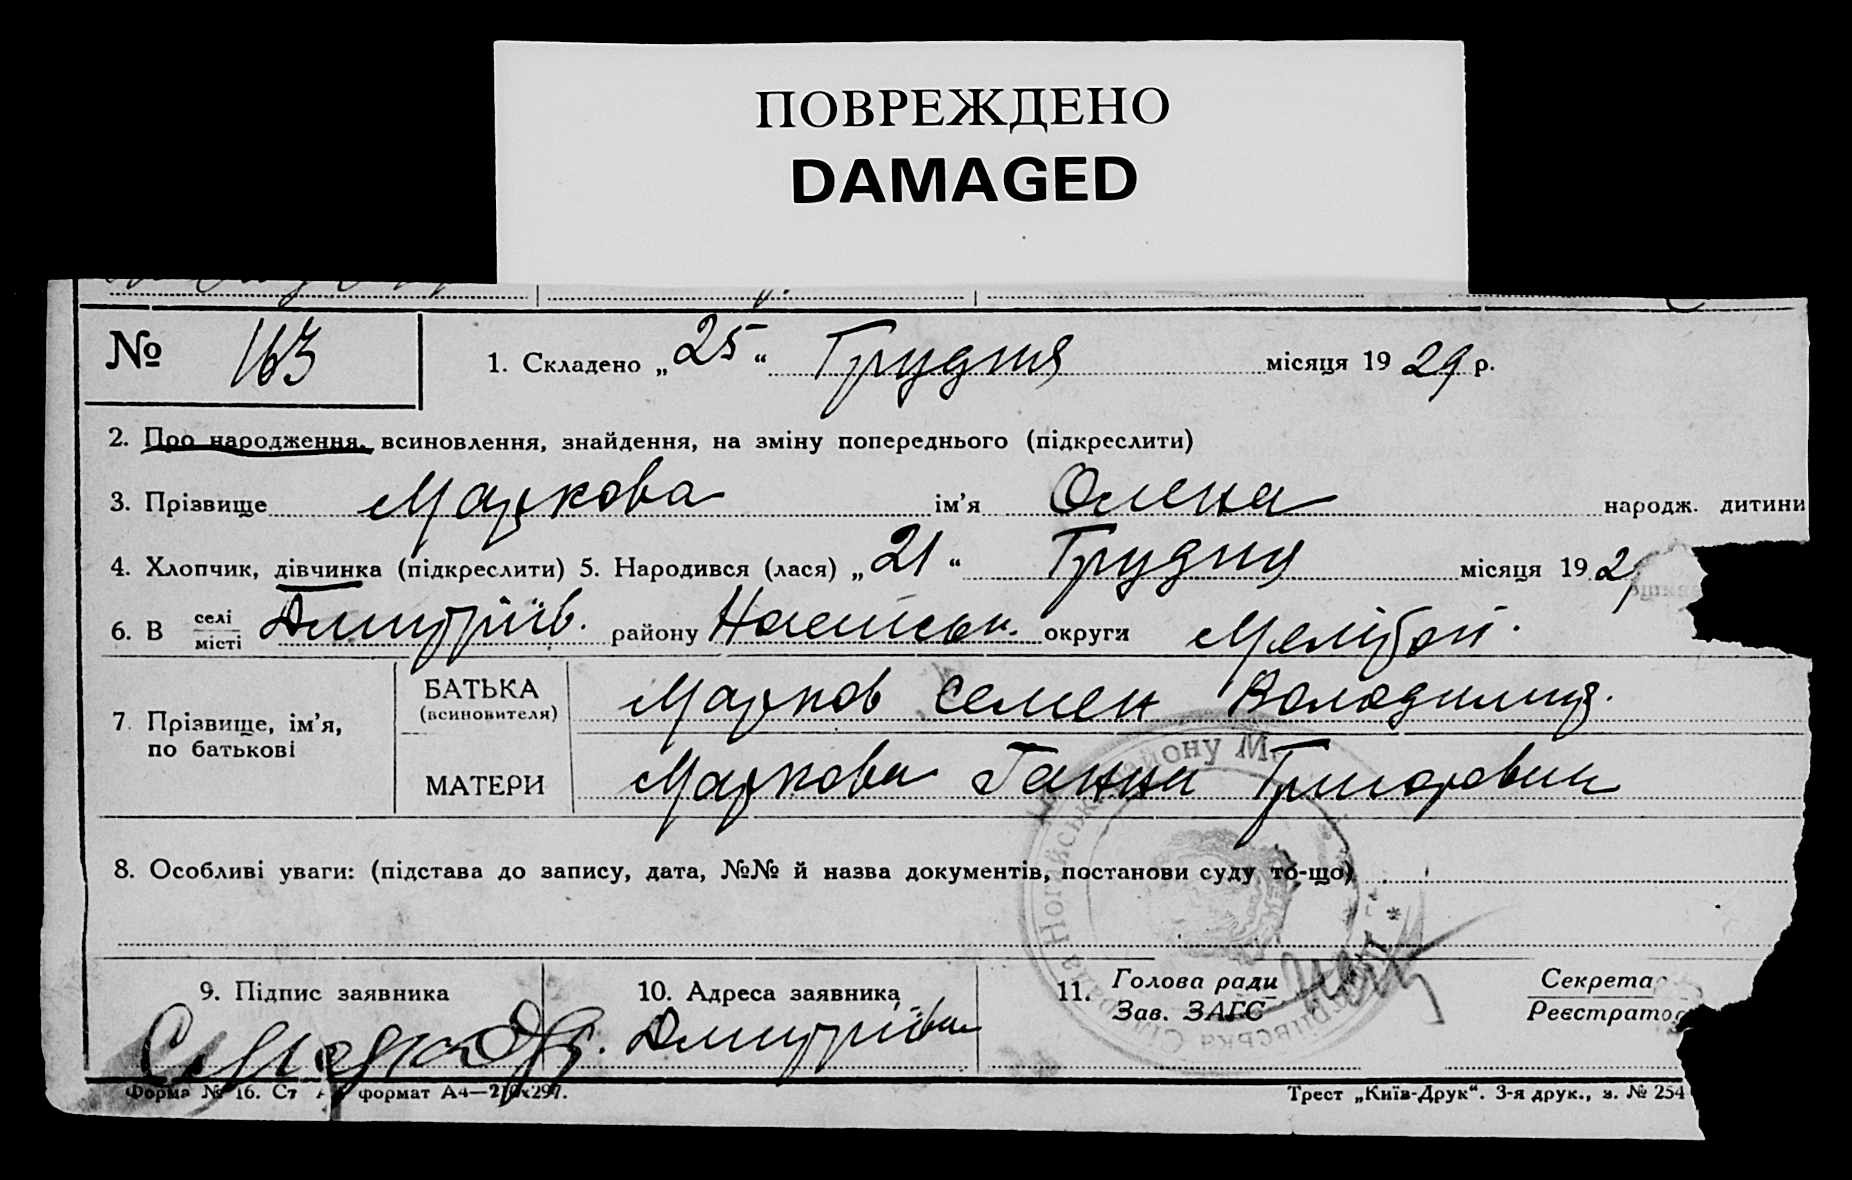 ПОВРЕЖДЕНО
DAMAGED
№ 163
1. Складено „25“ Грудня місяця 1929 р.
2. Про народження, всиновлення, знайдення, на зміну попереднього (підкреслити)
3. Прізвище Маркова ім’я Олена народж. дитини
4. Хлопчик, дівчинка (підкреслити) 5. Народився (лася) „21“ Грудня місяця 192
6. В селі Дмитріїв. району округи
місті
7. Прізвище, ім’я, по батькові
БАТЬКА (всиновителя) Марков Семен
МАТЕРИ Маркова Ганна
8. Особливі уваги: (підстава до запису, дата, №№ й назва документів, постанови суду то-що)
9. Підпис заявника 10. Адреса заявника 11. Голова ради Секрета
Зав. ЗАГС Реєстрато
Дмитріївка
району М
Форма № 16. Ст формат А4—210х297.
Трест „Київ-Друк“. 3-я друк., з. № 254